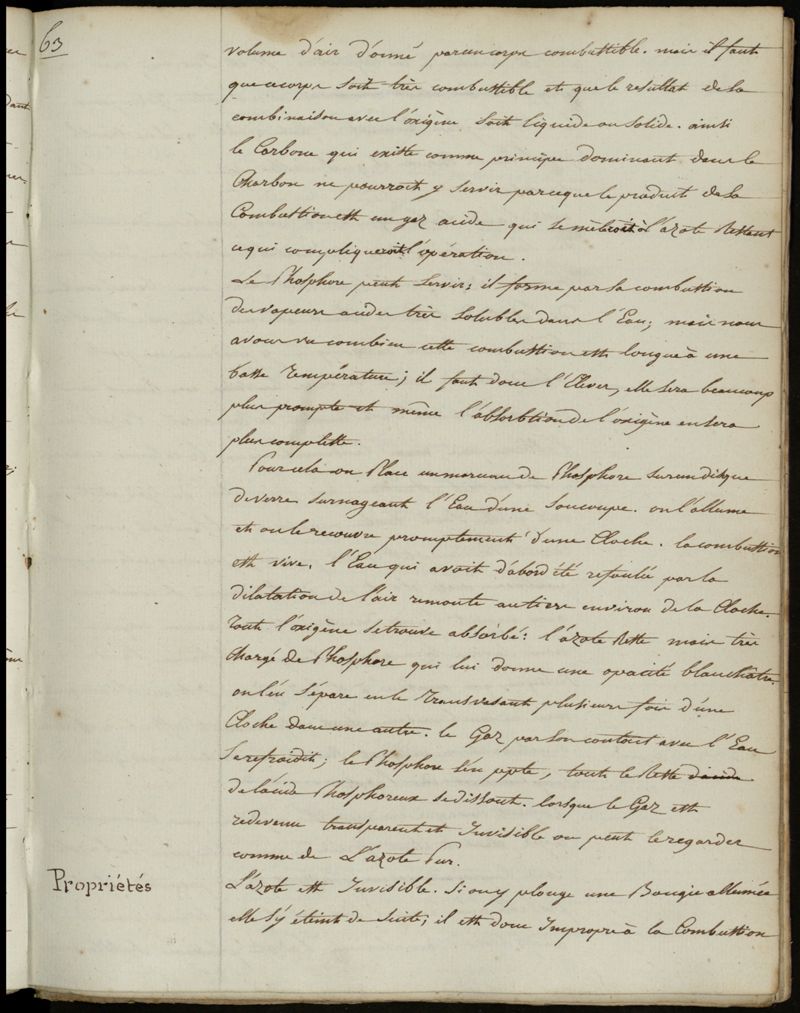 63
volume d'air donné par un corps combustible. mais il faut
que ce corps soit très combustible et que le resultat de la
combinaison avec l'oxigène soit liquide ou solide. ainsi
le Carbone qui existe comme principe dominant dans le
Charbon ne pourroit y servir parceque le produit de la
Combustion est un gaz acide qui se mêleroit à l'azote Restant
ce qui compliqueroit l'opération.
Le Phosphore peut servir; il forme par sa combustion
des vapeurs acides très solubles dans l'Eau; mais nous
avons vu combien cette combustion est longue à une
basse température; il faut donc l'Elever, elle sera beaucoup
plus prompte et même l'absorbtion de l'oxigène en sera
plus complette.
Pour cela on Place un morceau de Phosphore sur un disque
de verre surnageant l'Eau d'une soucoupe. on l'allume
et on le recouvre promptement d'une Cloche. la combustion
est vive. l'Eau qui avoit d'abord été refoulée par la
dilatation de l'air remonte au tiers environ de la Cloche.
tout l'oxigène se trouve absorbé: l'azote Reste mais très
chargé de Phosphore qui lui donne une opacité blanchatre.
on l'en sépare en le transvasant plusieurs fois d'une
Cloche dans une autre. le Gaz par son contact avec l'Eau
se refroidit; le Phosphore s'en ppte, tout le Reste
de l'acide Phosphoreux se dissout. lorsque le Gaz est
redevenu transparent et Invisible on peut le regarder
comme de L'azote Pur.
Propriétés
L'azote est Invisible. Si on y plonge une Bougie allumée
elle s'y éteint de suite; il est donc Impropre à la Combustion